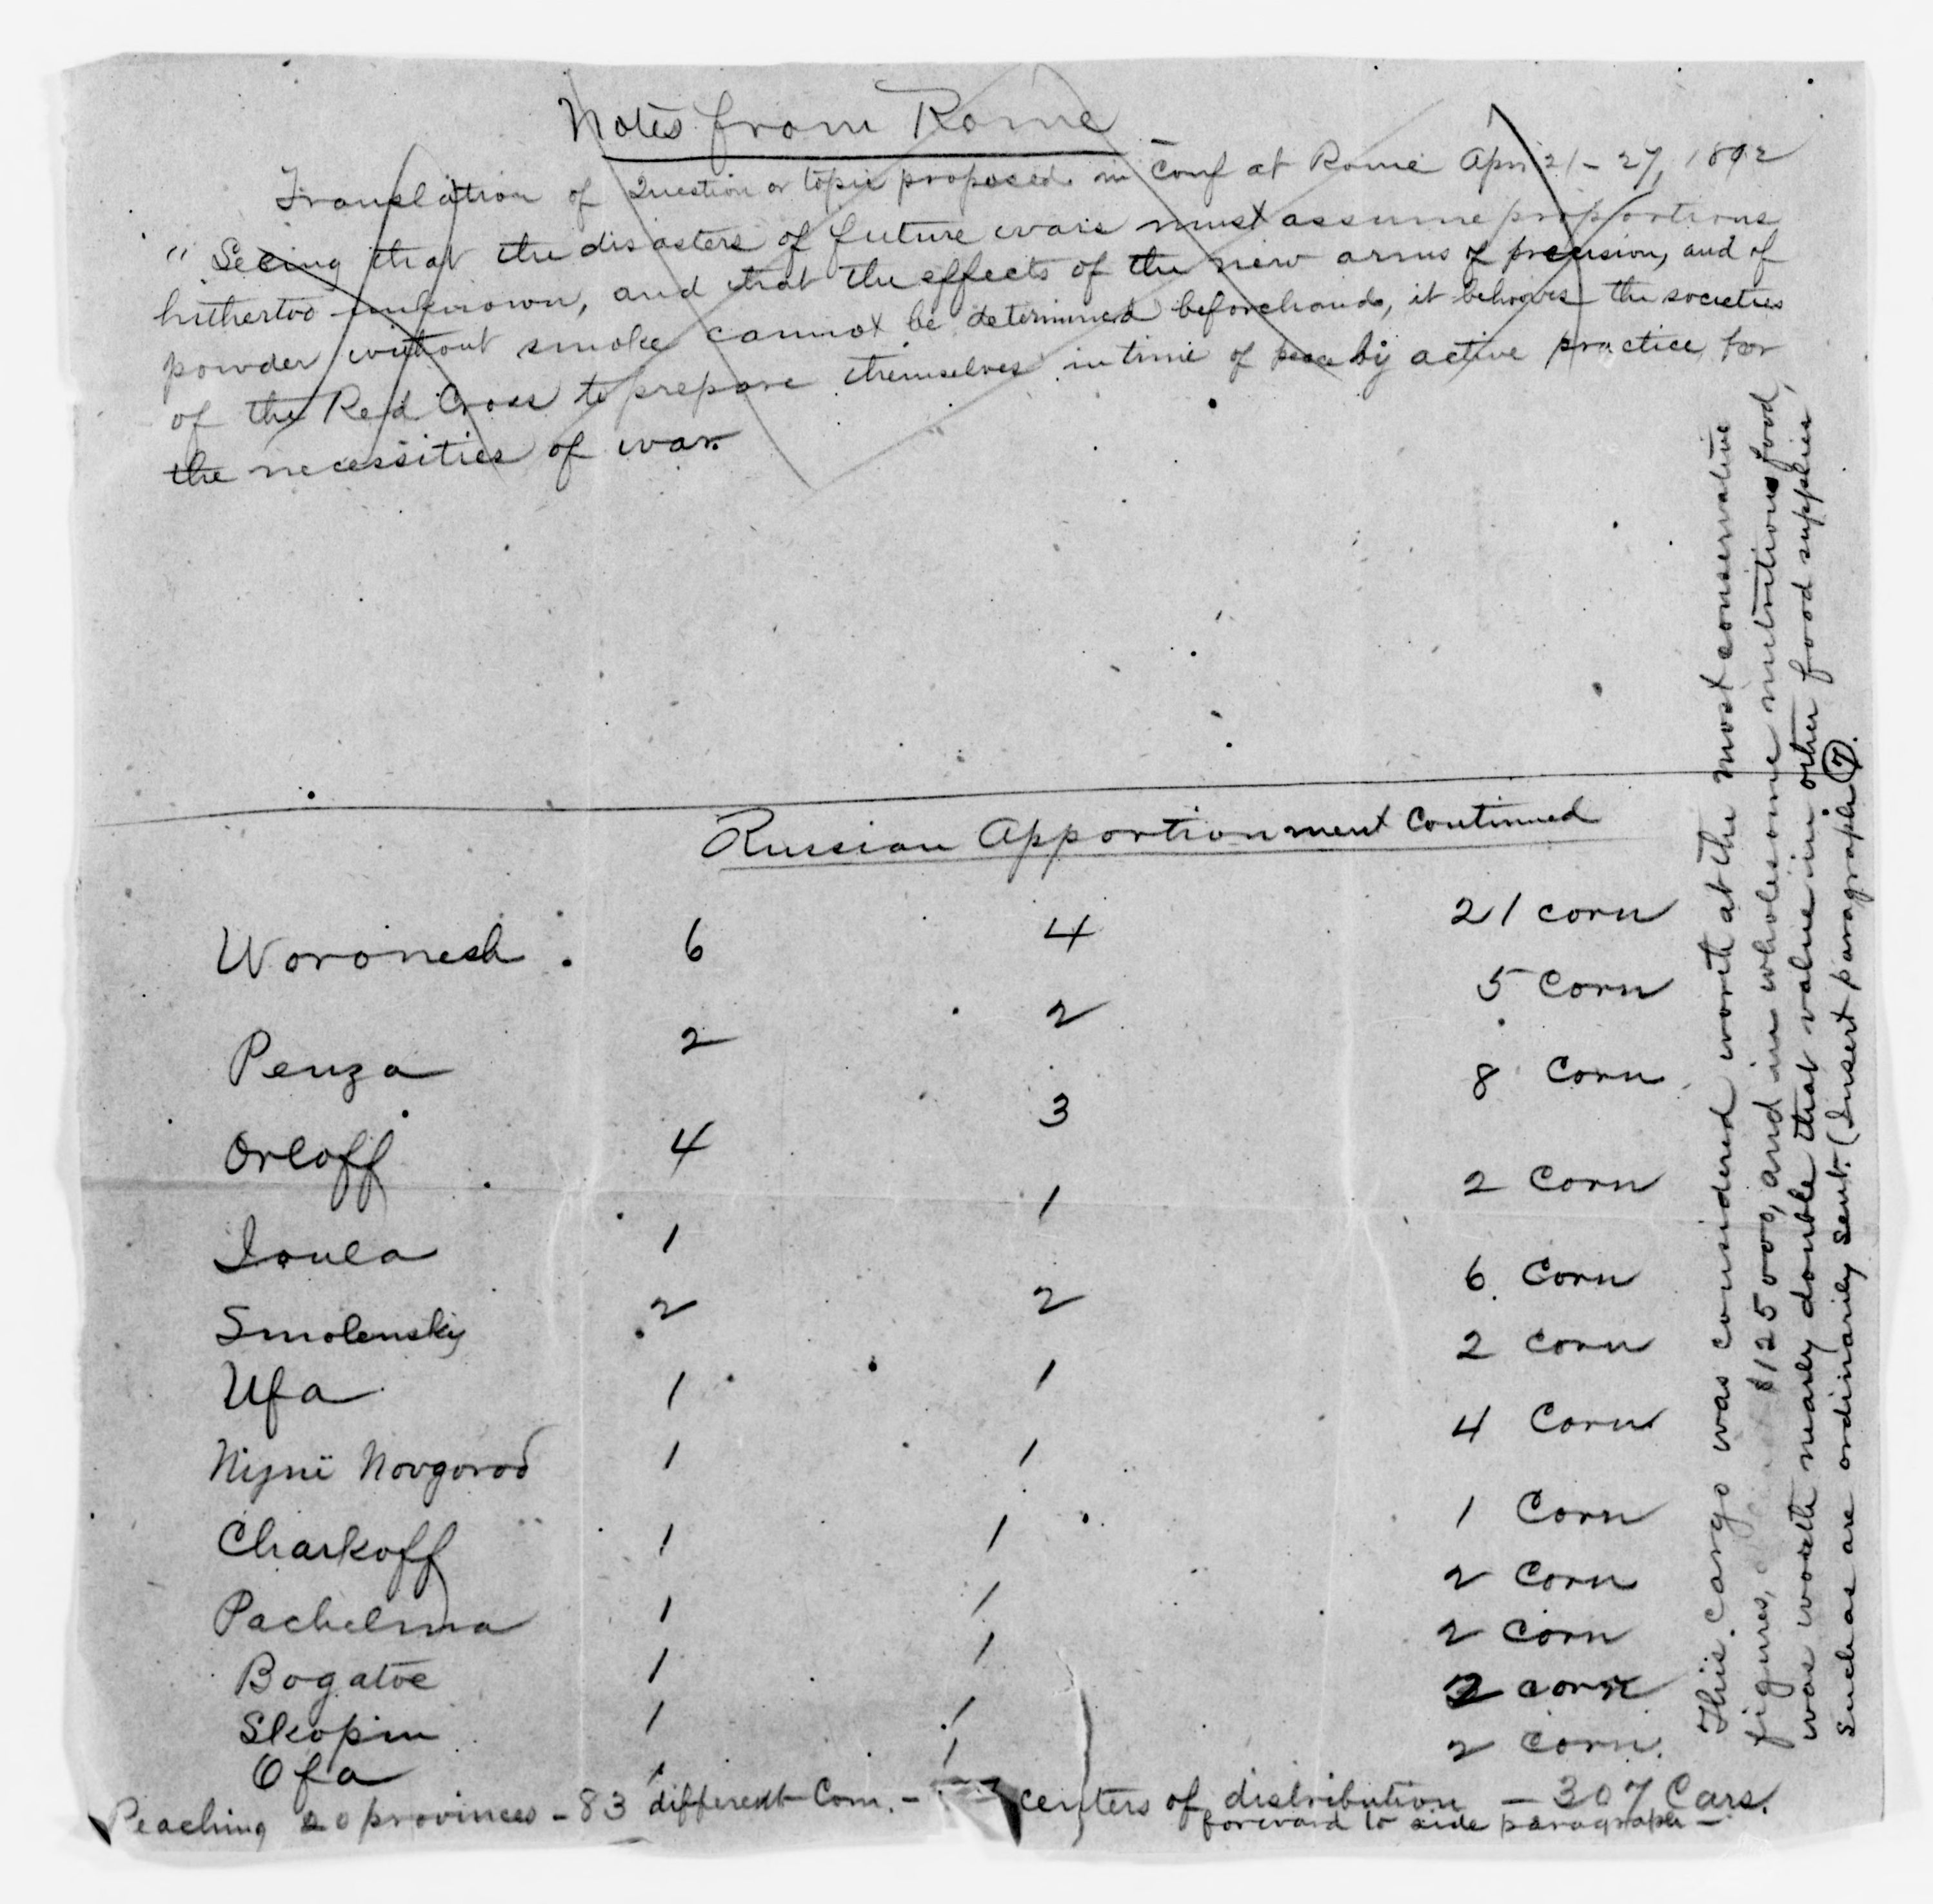 Notes from Rome
Translation of Question or topic proposed in Conf at Rome Apr 21-27, 1892
"Seeing that the disasters of future wars must assume proportions
hithertoo unknown, and that the effects of the new arms of precision, and of
powder without smoke cannot be determined beforehand, it behooves the societies
of the Red Cross to prepare themselves in time of peace by active practice for
the necessities of war.
Russian Apportionment Continued
Woronesh. 6 4 21 corn
Penza 2 2 5 Corn
Orloff 4 3 8 Corn
Toula 1 1 2 Corn
Smolensky 2 2 6 Corn
Ufa 1 1 2 Corn
Nijnii Novgorod 1 1 4 Corn
Charkoff 1 1 1 Corn
Pachelma 1 1 2 Corn
Bogatoe 1 1 2 Corn
Skopin 1 1 2 corn
Ofa 1 1 2 Corn.
Reaching 20 provinces - 83 different Com. - centers of distribution - 307 Cars.
forward to side paragraph -
This cargo was considered worth at the most conservative
figures, $125000, and in wholesome nutritious food,
was worth nearly double that value in other food supplies
such as are ordinarily sent. (Insert paragraph 7).